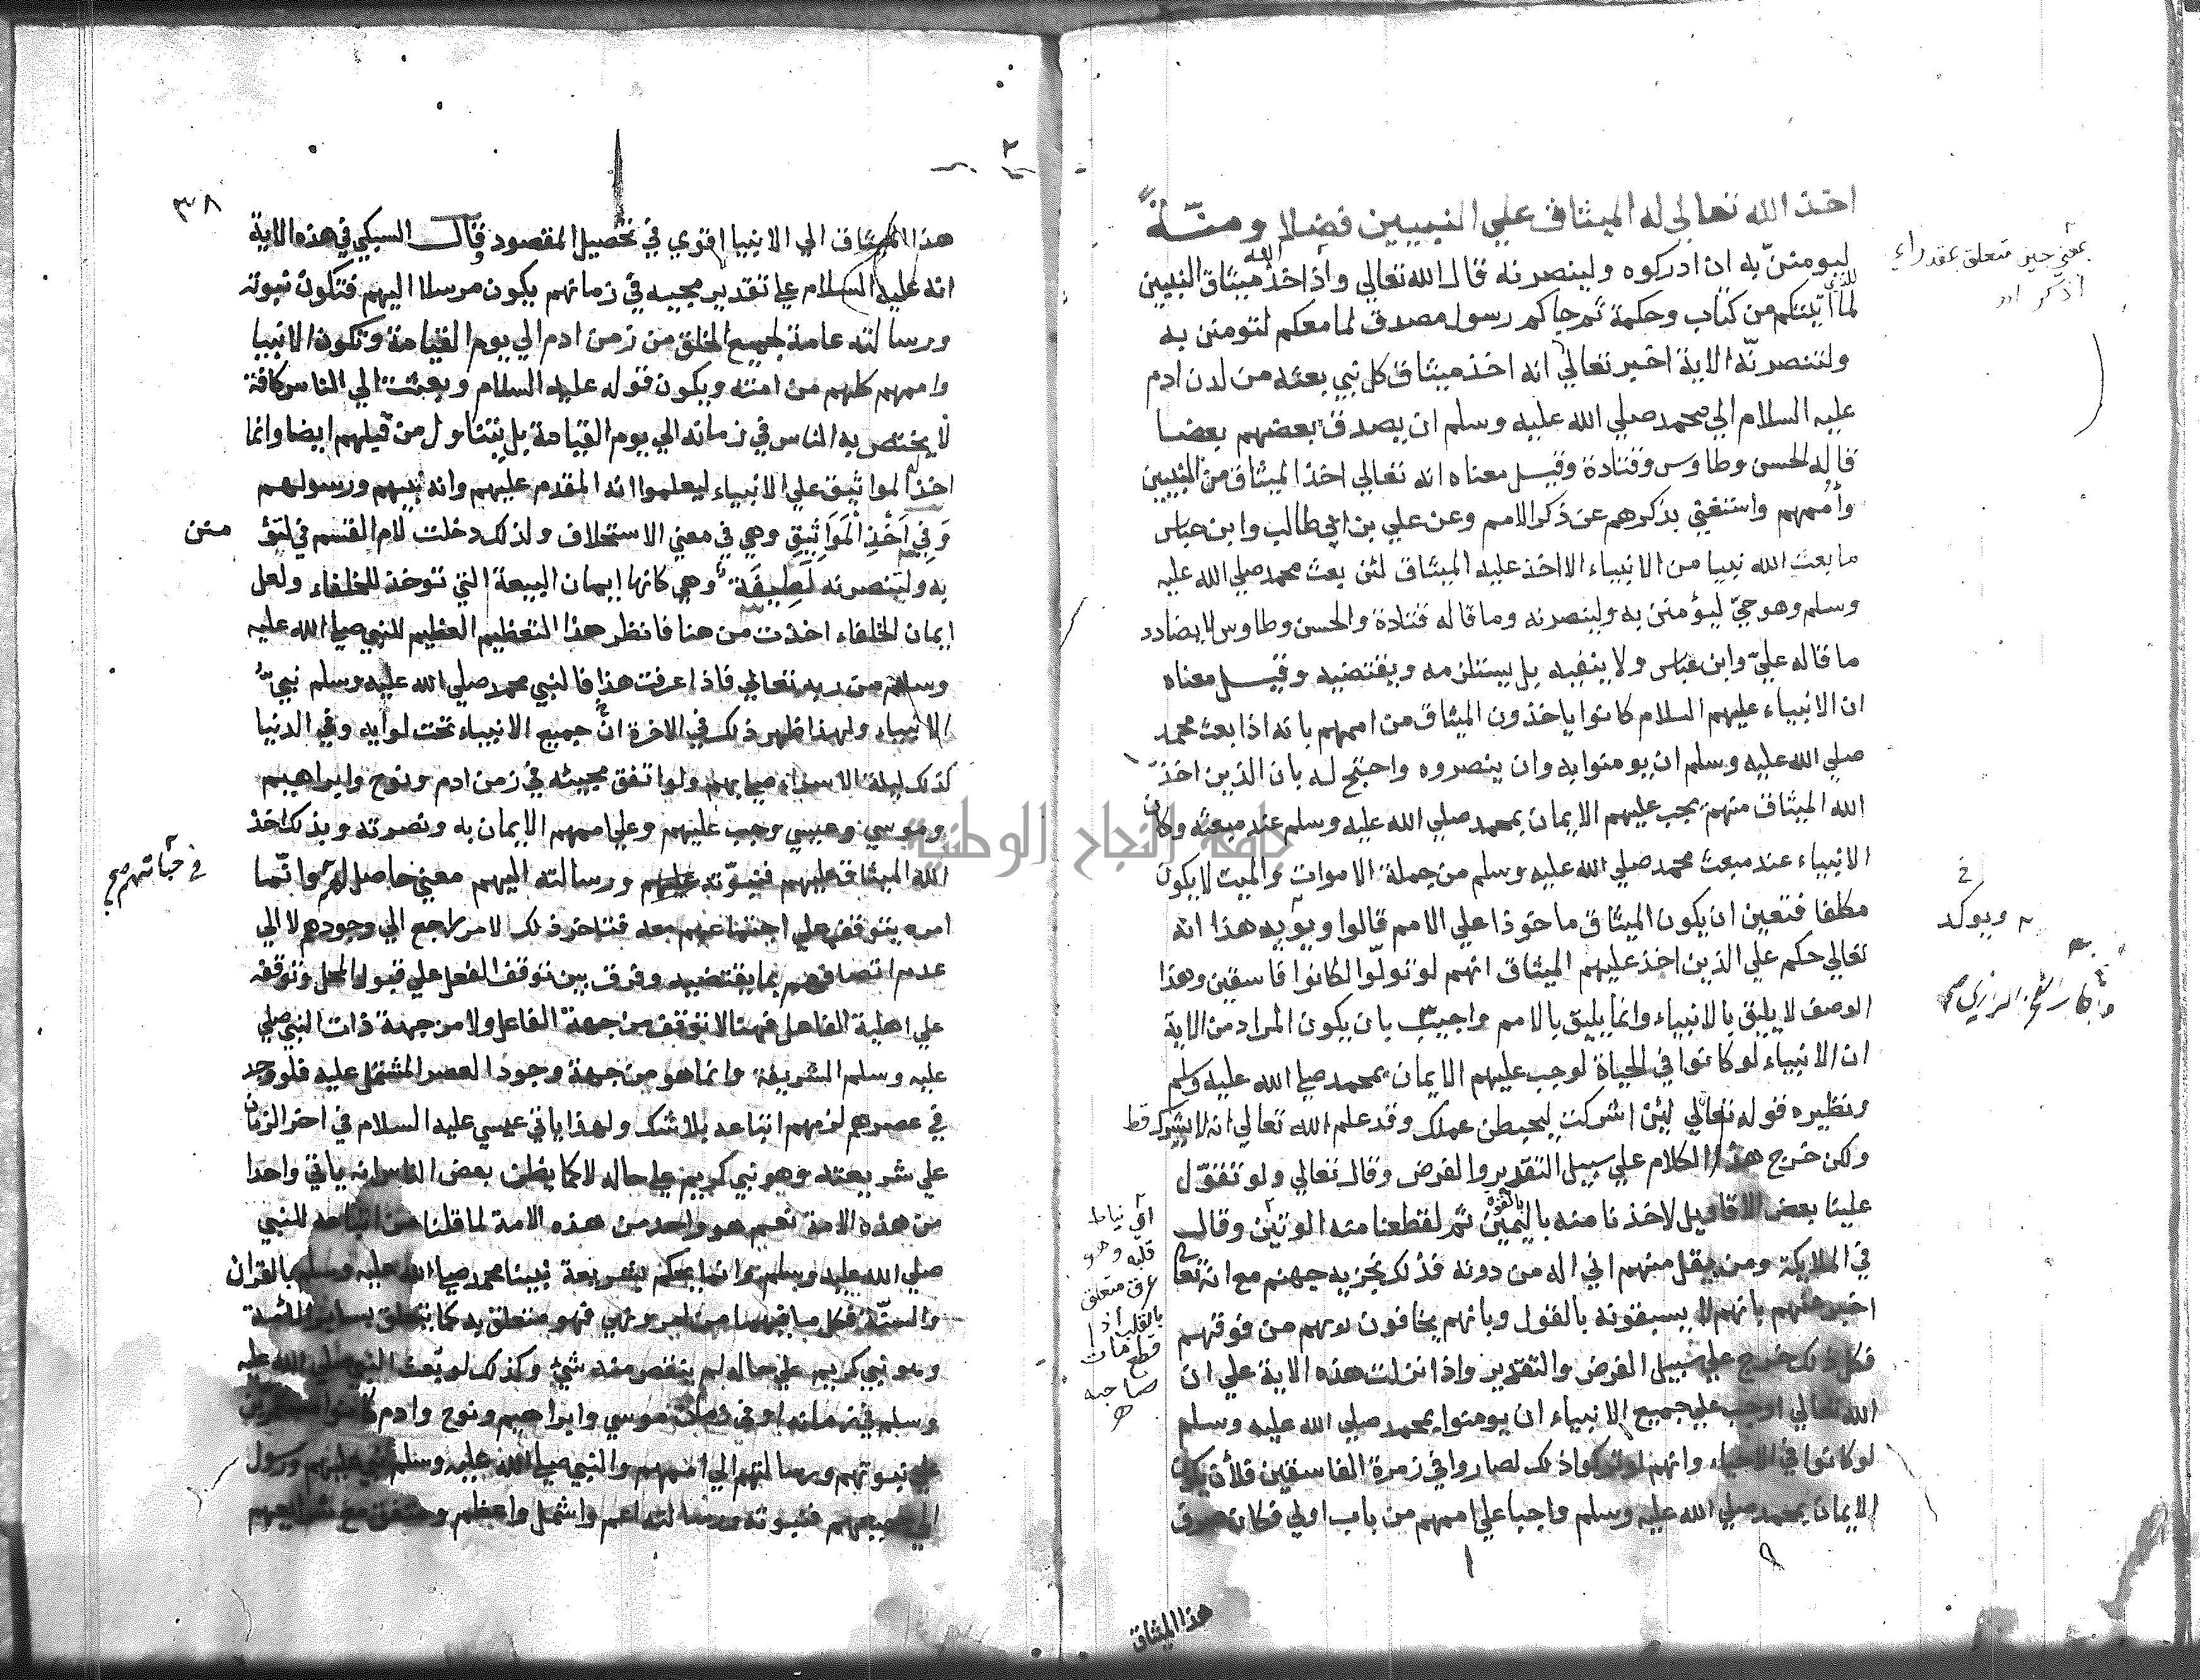 اخذ الله تعالى له الميثاق علي النبيين فضلا ومنّةً
ليومننّ به ان ادركوه ولينصرنه قال الله تعالي وأذ اخذ الله ميثاق النبيين
لما أتيتكم من كتاب وحكمة ثم جاكم رسول مصدق لما معكم لتومنن به
ولتنصرنّه الاية اخبر تعالي انه اخذ ميثاق كل نبي بعثه من لدن ادم
عليه السلام الي محمد صلي الله عليه وسلم ان يصدق بعضهم بعضا
قاله الحسن وطاوس وقتادة وقيل معناه انه تعالي اخذ الميثاق من النبيين
وأممهم واستغني بذكرهم عن ذكر الامم وعن علي بن ابي طالب وابن عباس
ما بعث الله نبيا من الانبياء الا اخذ عليه الميثاق لئن بعث محمد صلي الله عليه
وسلم وهو حيّ ليؤمنن به ولينصرنه وما قاله قتادة والحسن وطاوس لا يضادد
ما قاله عليّ وابن عباس ولا ينفيه بل يستلزمه ويقتضيه وقيل معناه
ان الانبياء عليهم السلام كانوا ياخذون الميثاق من اممهم بانه اذا بعث محمد
صلي الله عليه وسلم ان يومنوا به وان ينصروه واحتج له بان الذين اخذ
الله الميثاق منهم يجب عليهم الايمان بمحمد صلي الله عليه وسلم عند مبعثه وكان
الانبياء عند مبعث محمد صلي الله عليه وسلم من جملة الاموات والميت لا يكون
مكلفا فتعين ان يكون الميثاق ماخوذا علي الامم قالوا ويؤيد هذا انه
تعالي حكم علي الذين اخذ عليهم الميثاق انهم لو تولّوا لكانوا فاسقين وهذا
الوصف لا يليق بالانبياء وانما يليق بالامم واجيب بان يكون المراد من الاية
ان الانبياء لو كانوا في الحياة لوجب عليهم الايمان بمحمد صلي الله عليه وسلم
ونظيره قوله تعالي لئن اشركت ليحبطن عملك وقد علم الله تعالي انه لا يشرك قط
ولكن خرج هذا الكلام علي سبيل التقدير والفرض وقال تعالي ولو تقوّل
علينا بعض الاقاويل لاخذنا منه باليمين ثم لقطعنا منه الوتين وقال
في الملايكة ومن يقل منهم اني اله من دونه فذلك نجزيه جهنم مع انه تعالي
اخبر عنهم بانهم لا يسبقونه بالقول وبانهم يخافون ربهم من فوقهم
فكل ذلك خرج علي سبيل الفرض والتقدير واذا نزلت هذه الاية علي ان
الله تعالي اوجب علي جميع الانبياء ان يومنوا بمحمد صلي الله عليه وسلم
لو كانوا في الاحياء وانهم لو تركوا ذلك لصاروا في زمرة الفاسقين فلأن يكون
الايمان بمحمد صلي الله عليه وسلم واجبا علي اممهم من باب اولي فكان صرف
هذا الميثاق
بمعني حين متعلق بمقدر اي
اذكر
ويوكد
اي نياط
قلبه وهو
عرق متعلق
بالقلب اذا
قطع مات
صاحبه
٣٨
هذا الميثاق الي الانبيا اقوي في تحصيل المقصود وقال السبكي في هذه الاية
انه عليه السلام علي تقدير مجييه في زمانهم يكون مرسلا اليهم فتكون نبوته
ورسالته عامة لجميع الخلق من زمن ادم الي يوم القيامة وتكون الانبيا
واممهم كلهم من امته ويكون قوله عليه السلام وبعثت الي الناس كافة
لا يختص به الناس في زمانه الي يوم القيامة بل يتناول من قبلهم ايضا وانما
اخذ المواثيق علي الانبياء ليعلموا انه المقدم عليهم وانه نبيهم ورسولهم
وَفِي اَخْذِ الْمَوَاثِيقِ وهي في معني الاستحلاف ولذلك دخلت لام القسم في لتؤ منن
به ولتنصرنه لَطِيفَة وهي كانها ايمان البيعة التي توخذ للخلفاء ولعل
ايمان الخلفاء اخذت من هنا فانظر هذا التعظيم العظيم للنبي صلي الله عليه
وسلم من ربه تعالي فاذا عرفت هذا فالنبي محمد صلي الله عليه وسلم نبيّ
الانبياء ولهذا ظهر ذلك في الاخرة انّ جميع الانبياء تحت لوايه وفي الدنيا
كذلك ليلة الاسراء صلي بهم ولو اتفق مجيئه في زمن ادم ونوح وابراهيم
وموسي وعيسي وجب عليهم وعلي اممهم الايمان به ونصرته وبذلك اخذ
الله الميثاق عليهم فنبوّته عليهم ورسالته اليهم معني حاصل لهم وانّما
في حياتهم صح
امره يتوقف علي اجتماعهم معه فتاخر ذلك لامر راجع الي وجودهم لا الي
عدم اتصافهم بما يقتضيه وفرق بين توقف الفعل علي قبول المحل وتوقفه
علي اهلية الفاعل فهنا لا توقف من جهة الفاعل ولا من جهة ذات النبي صلي
عليه وسلم الشريفة وانما هو من جهة وجود العصر المشتمل عليه فلو وجد
في عصرهم لزمهم اتباعه بلا شك ولهذا ياتي عيسي عليه السلام في اخر الزمان
علي شريعته وهو نبي كريم علي حاله لا كما يظن بعض الناس انه ياتي واحدا
من هذه الامة نعم هو واحد من هذه الامة لما قلنا من اتباعه للنبي
صلي الله عليه وسلم وانما يحكم بشريعة نبينا محمد صلي الله عليه وسلم بالقران
والسنّة فكل ما فيهما من امر ونهي فهو متعلق به كما يتعلق بساير الامة
وهو نبي كريم علي حاله لم ينقص منه شيئ وكذلك لو بعث النبي صلي الله عليه
وسلم في زمانه او في زمان موسي وابراهيم ونوح وادم كانوا مستمرين
علي نبوتهم ورسالتهم الي اممهم والنبي صلي الله عليه وسلم نبي عليهم ورسول
الي جميعهم فنبوته ورسالته اعم واشمل واعظم ومتفق مع شرائعهم
جامعة النجاح الوطنية